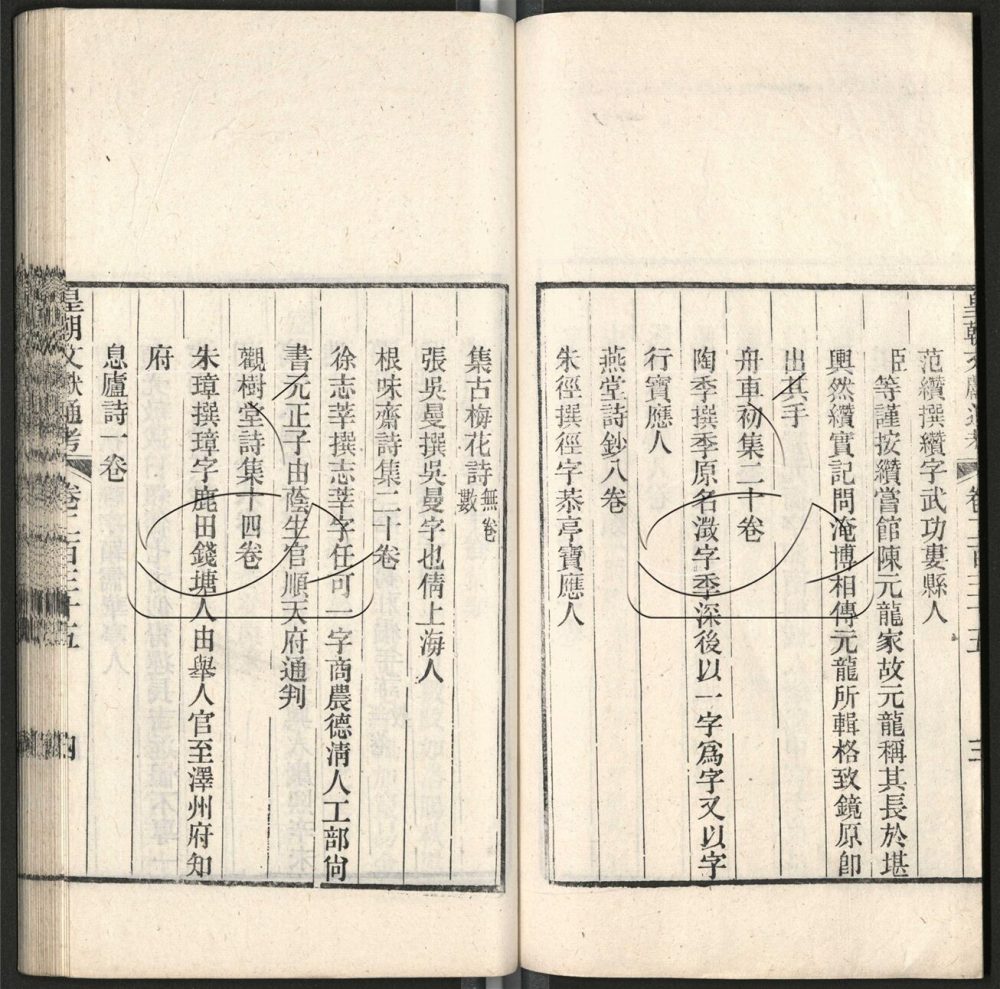 范纘撰纘字武功婁縣人
臣等謹按纘嘗館陳元龍家故元龍稱其長於堪
輿然纘實記問淹博相傳元龍所輯格致鏡原卽
出其手
舟車初集二十卷
陶季撰季原名澂字季深後以一字爲字又以字
行寶應人
燕堂詩鈔八卷
朱徑撰徑字恭亭寶應人
皇朝文獻通考 卷二百三十五 三
集古梅花詩無卷數
張吳曼撰吳曼字也倩上海人
根味齋詩集二十卷
徐志莘撰志莘字任可一字商農德淸人工部尙
書元正子由蔭生官順天府通判
觀樹堂詩集十四卷
朱璋撰璋字鹿田錢塘人由舉人官至澤州府知
府
息廬詩一卷
皇朝文獻通考 卷二百三十五 四